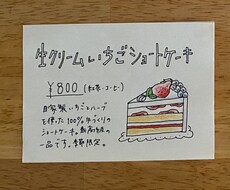 生クリームいちごショートケーキ
¥800 (紅茶・コーヒー)
自家製いちごとハーブ
を使った100%手づくりの
ショートケーキ。
一品です。